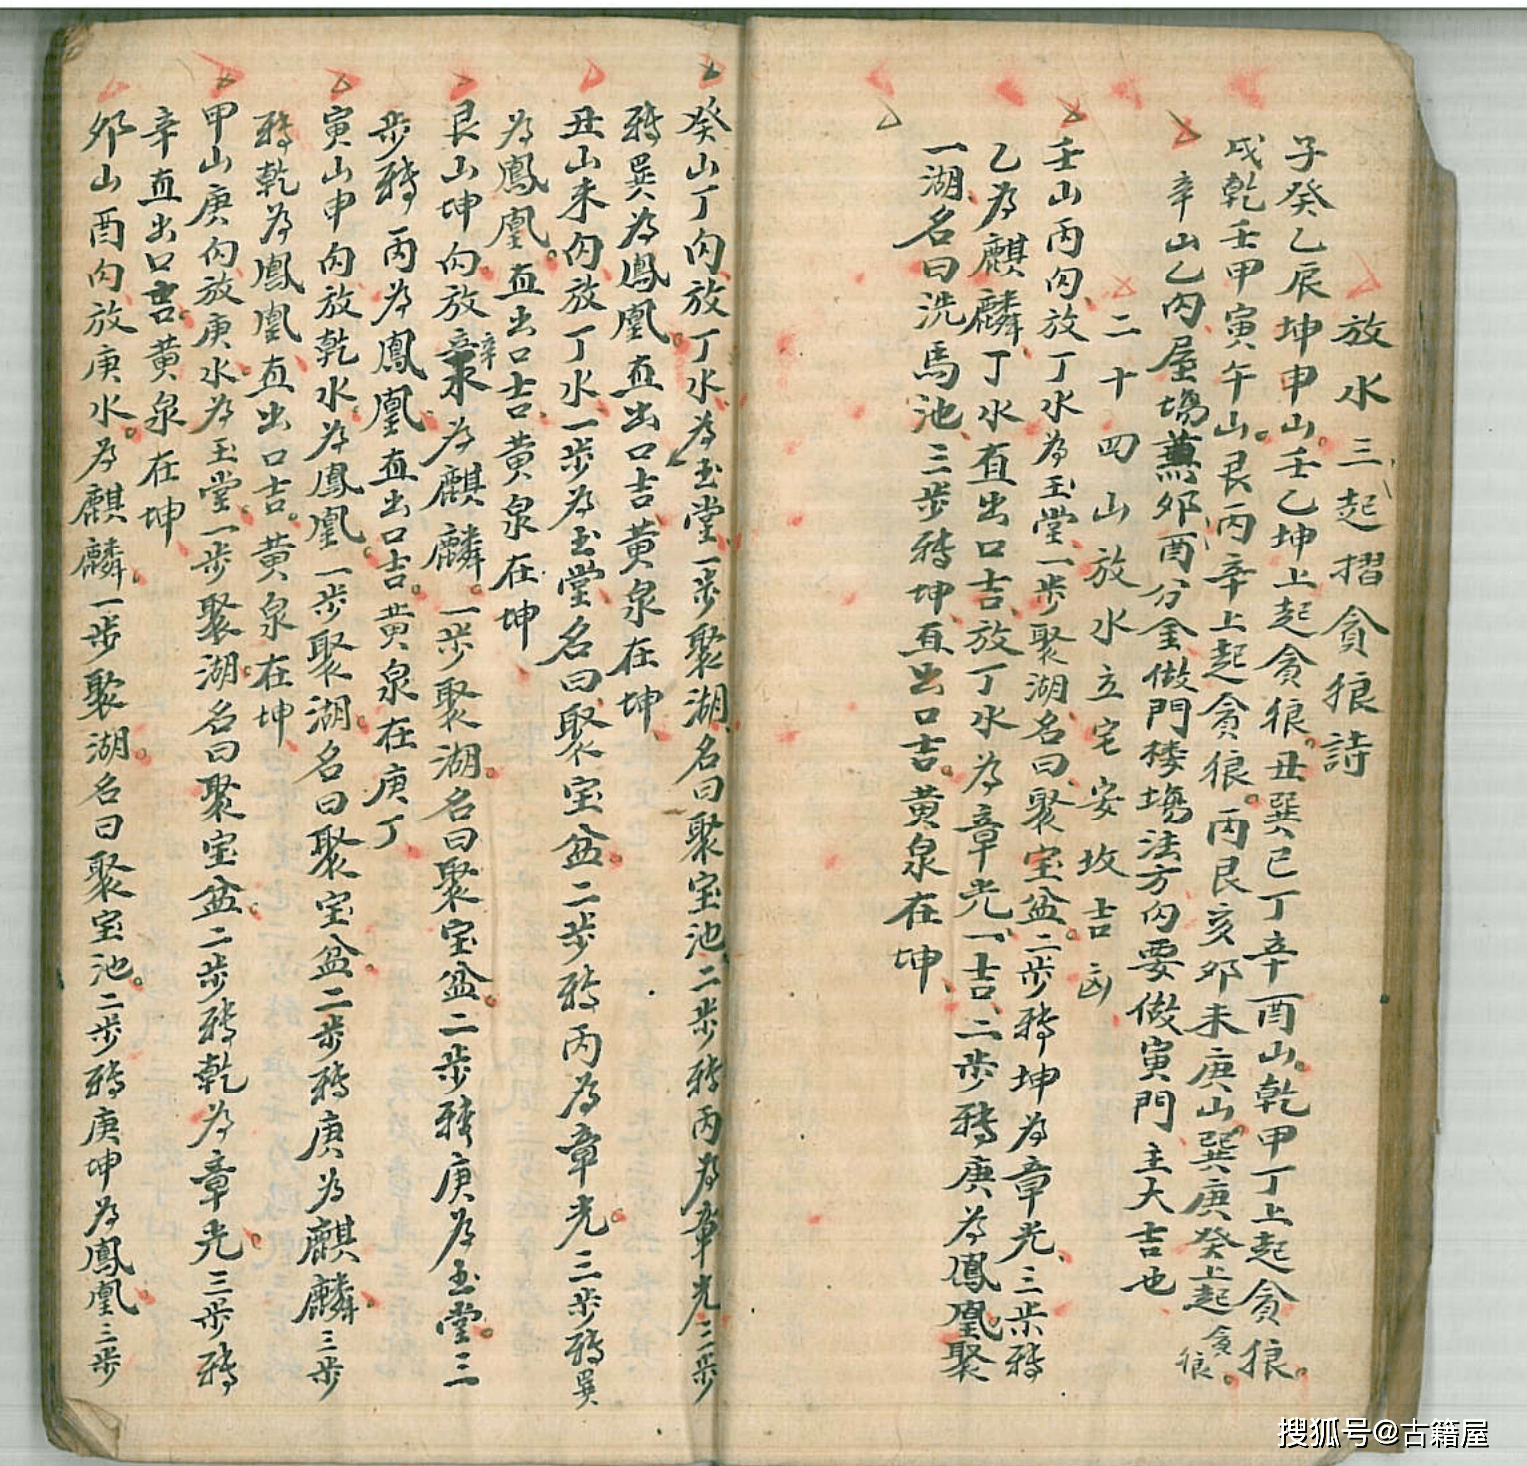 放水三起摺貪狼詩
子癸乙辰坤申山。壬乙坤上起貪狼。丑巽巳丁辛酉山。乾甲丁上起貪狼。
戌乾壬甲寅午山。艮丙辛上起貪狼。丙艮亥卯未庚山巽庚癸上起貪狼。
辛山乙向屋場兼卯酉分金做門楼場法方向要做寅門主大吉也
二十四山放水立宅安坟吉凶
壬山丙向放丁水為玉堂一步聚湖名曰聚宝盆。二步轉坤為章光三步轉
乙為麒麟丁水直出口吉放丁水為章光一吉二步轉庚為鳳凰聚
一湖名曰洗馬池三步轉坤直出口吉。黄泉在坤
癸山丁向放丁水為玉堂一步聚湖名曰聚宝池二步轉丙為章光三步
轉巽為鳳凰直出口吉黄泉在坤
丑山未向放丁水一步為玉堂名曰聚宝盆。二步轉丙為章光。三步轉巽
為鳳凰。直出口吉黄泉在坤
艮山坤向放辛水為麒麟。一步聚湖。名曰聚宝盆。二步轉庚為玉堂。三
步轉丙為鳳凰直出口吉。黄泉在庚丁
寅山申向放乾水為鳳凰一步聚湖名曰聚宝盆。二步轉庚為麒麟三步
轉乾為鳳凰直出口吉。黄泉在坤
甲山庚向放庚水為玉堂一步聚湖。名曰聚宝盆二步轉乾為章光三步轉
辛直出口吉黄泉在坤
卯山酉向放庚水。為麒麟一步聚湖。名曰聚宝池。二步轉庚坤為鳳凰三步
搜狐号@古籍屋